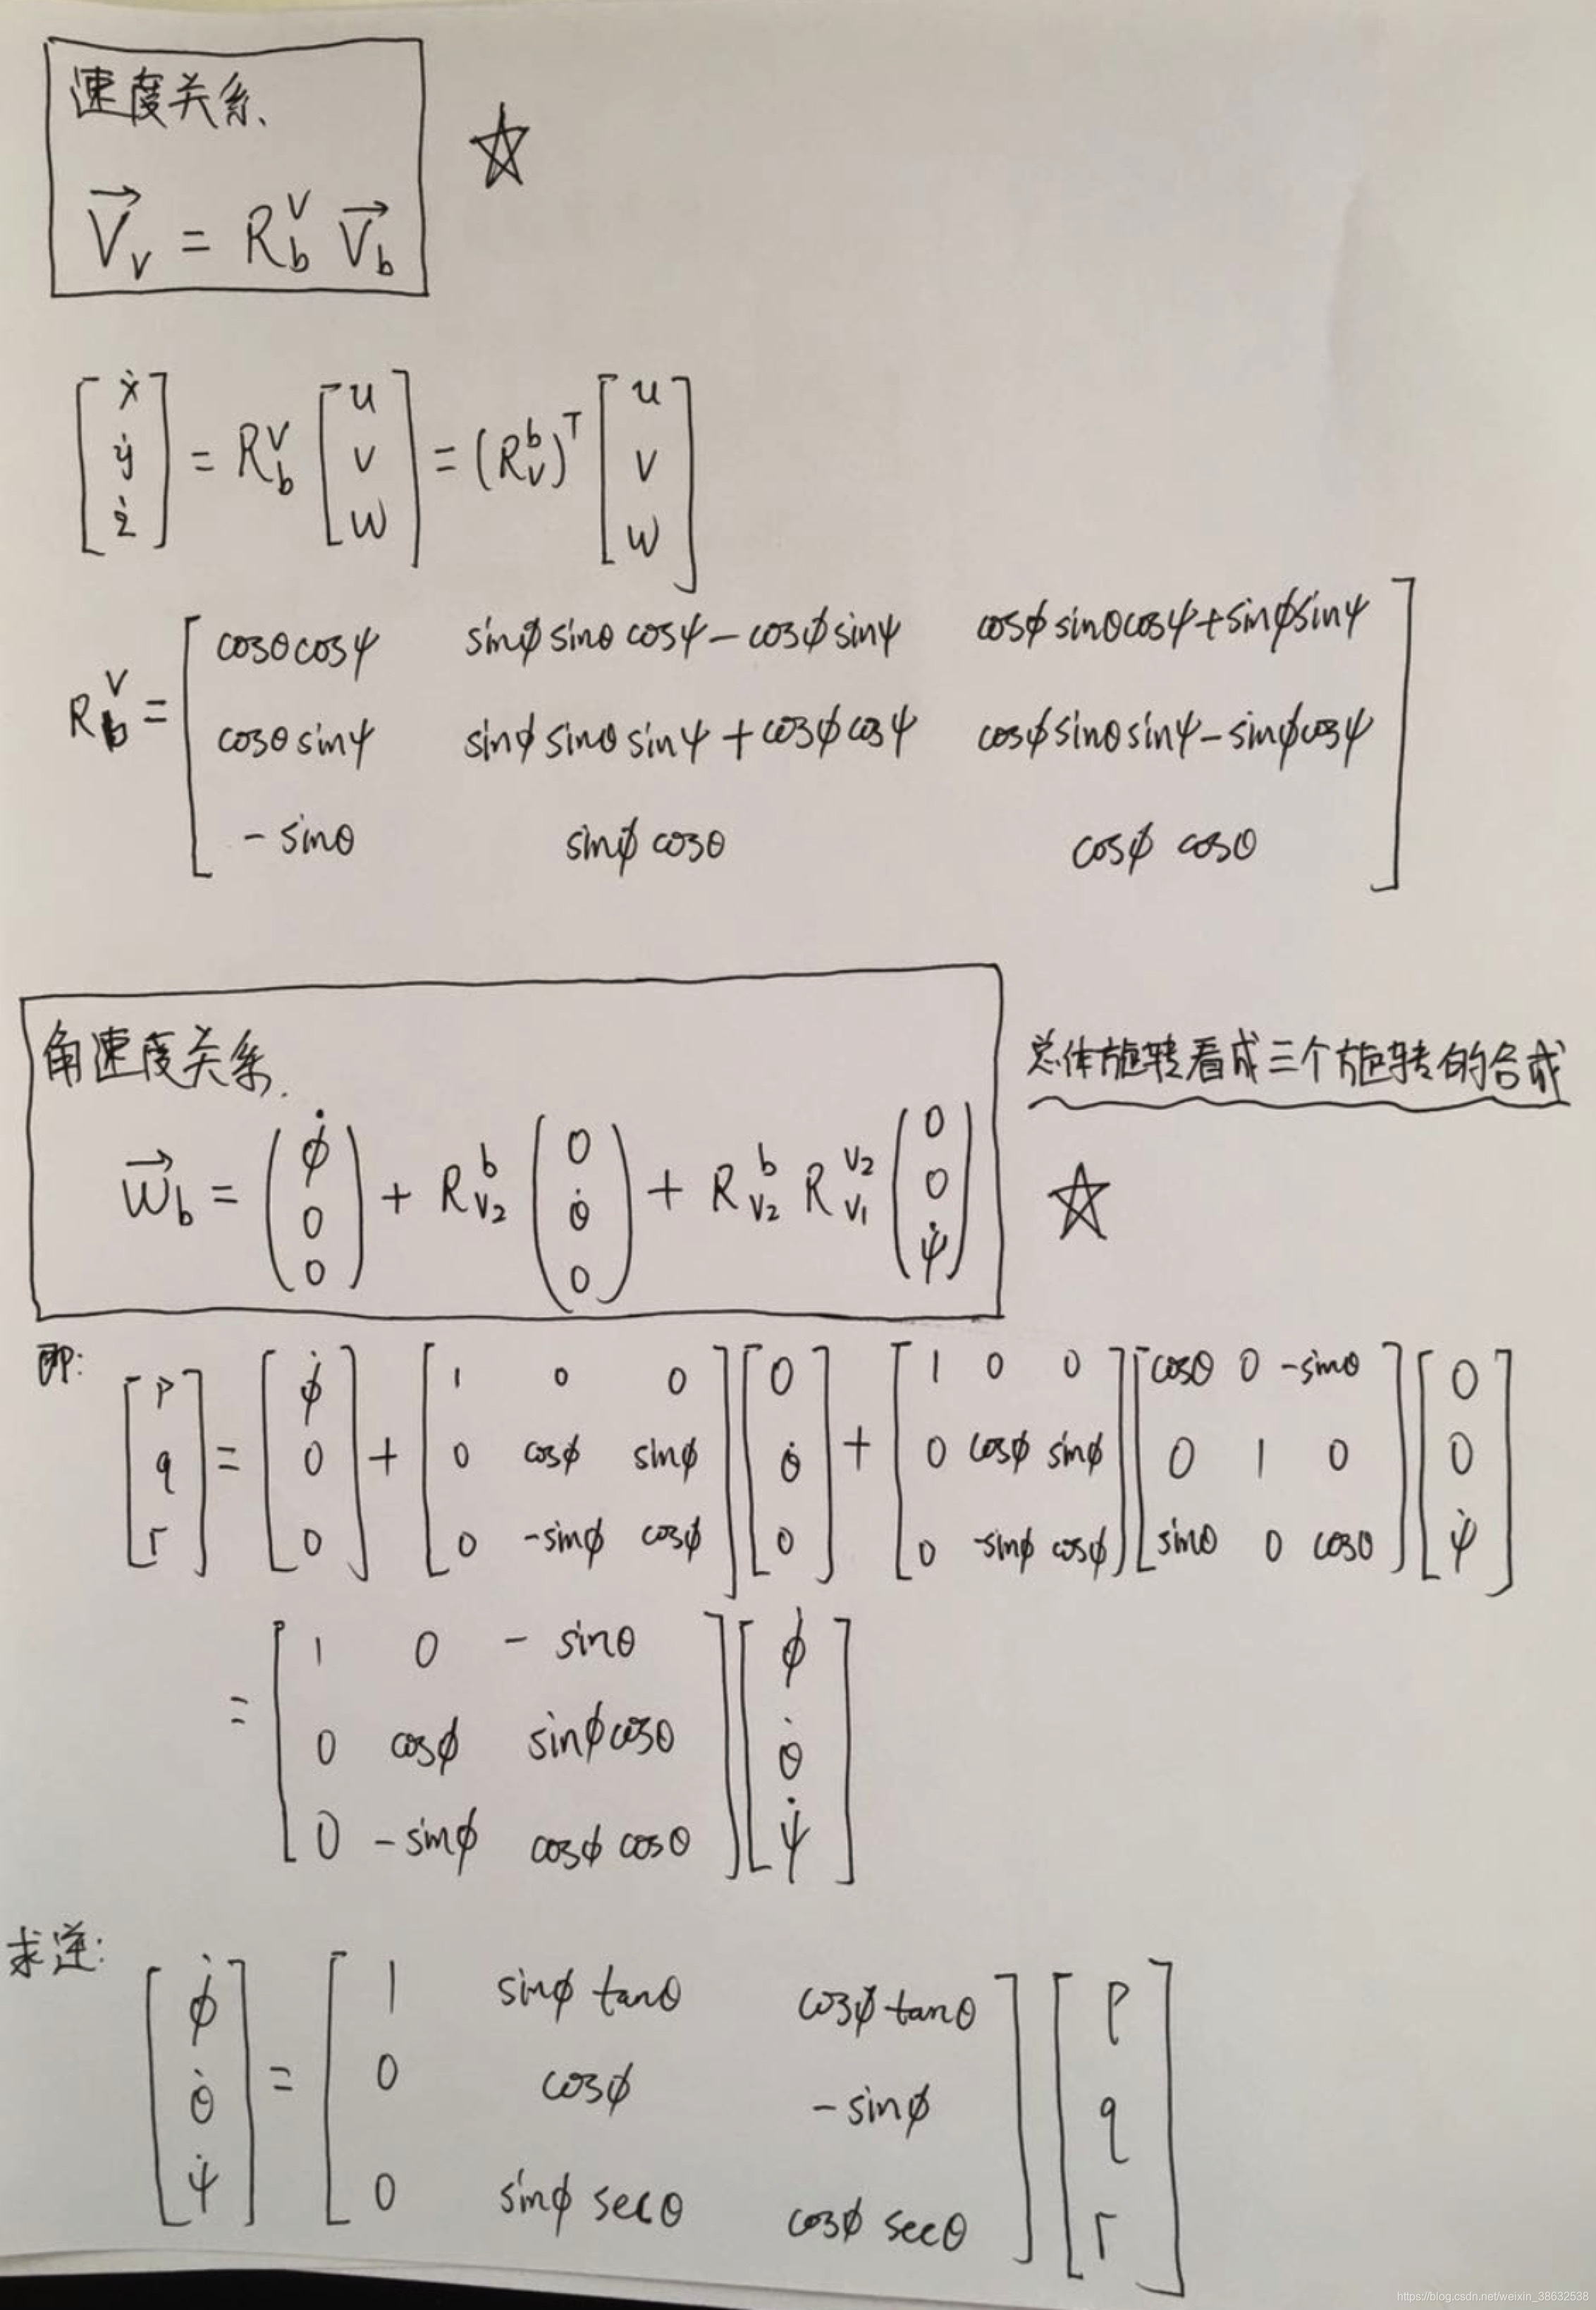 速度关系、
$\vec{V}_v = R_b^v \vec{V}_b$
$\begin{bmatrix} \dot{x} \\ \dot{y} \\ \dot{z} \end{bmatrix} = R_b^v \begin{bmatrix} u \\ v \\ w \end{bmatrix} = (R_v^b)^T \begin{bmatrix} u \\ v \\ w \end{bmatrix}$
$R_b^v = \begin{bmatrix} \cos\theta\cos\psi & \sin\phi\sin\theta\cos\psi - \cos\phi\sin\psi & \cos\phi\sin\theta\cos\psi + \sin\phi\sin\psi \\ \cos\theta\sin\psi & \sin\phi\sin\theta\sin\psi + \cos\phi\cos\psi & \cos\phi\sin\theta\sin\psi - \sin\phi\cos\psi \\ -\sin\theta & \sin\phi\cos\theta & \cos\phi\cos\theta \end{bmatrix}$
角速度关系.
总体旋转看成三个旋转的合成
$\vec{w}_b = \begin{pmatrix} \dot{\phi} \\ 0 \\ 0 \end{pmatrix} + R_{v_2}^b \begin{pmatrix} 0 \\ \dot{\theta} \\ 0 \end{pmatrix} + R_{v_2}^b R_{v_1}^{v_2} \begin{pmatrix} 0 \\ 0 \\ \dot{\psi} \end{pmatrix}$
即: $\begin{bmatrix} p \\ q \\ r \end{bmatrix} = \begin{bmatrix} \dot{\phi} \\ 0 \\ 0 \end{bmatrix} + \begin{bmatrix} 1 & 0 & 0 \\ 0 & \cos\phi & \sin\phi \\ 0 & -\sin\phi & \cos\phi \end{bmatrix} \begin{bmatrix} 0 \\ \dot{\theta} \\ 0 \end{bmatrix} + \begin{bmatrix} 1 & 0 & 0 \\ 0 & \cos\phi & \sin\phi \\ 0 & -\sin\phi & \cos\phi \end{bmatrix} \begin{bmatrix} \cos\theta & 0 & -\sin\theta \\ 0 & 1 & 0 \\ \sin\theta & 0 & \cos\theta \end{bmatrix} \begin{bmatrix} 0 \\ 0 \\ \dot{\psi} \end{bmatrix}$
$= \begin{bmatrix} 1 & 0 & -\sin\theta \\ 0 & \cos\phi & \sin\phi\cos\theta \\ 0 & -\sin\phi & \cos\phi\cos\theta \end{bmatrix} \begin{bmatrix} \dot{\phi} \\ \dot{\theta} \\ \dot{\psi} \end{bmatrix}$
求逆: $\begin{bmatrix} \dot{\phi} \\ \dot{\theta} \\ \dot{\psi} \end{bmatrix} = \begin{bmatrix} 1 & \sin\phi\tan\theta & \cos\phi\tan\theta \\ 0 & \cos\phi & -\sin\phi \\ 0 & \sin\phi\sec\theta & \cos\phi\sec\theta \end{bmatrix} \begin{bmatrix} p \\ q \\ r \end{bmatrix}$
https://blog.csdn.net/weixin_38632538